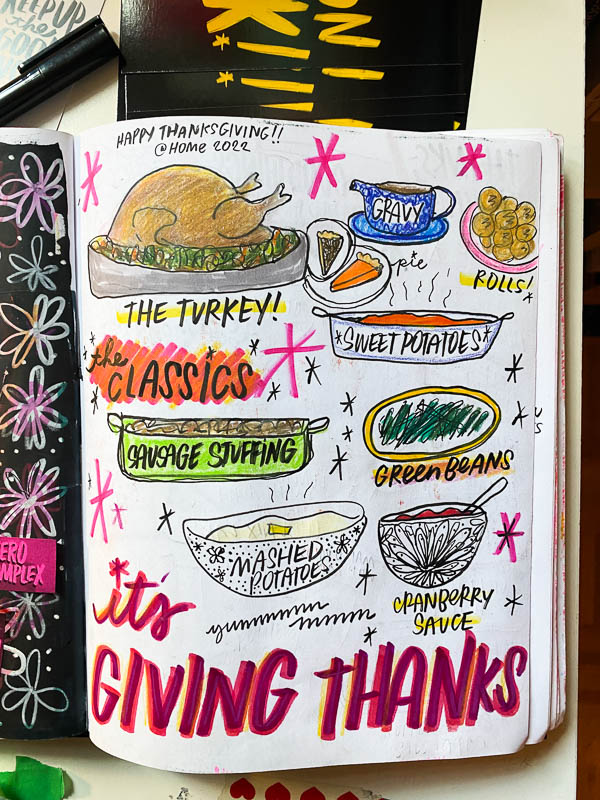 KEEP UP
the
GOOD
HAPPY THANKSGIVING!!
@HOME 2022
GRAVY
pie
ROLLS!
THE TURKEY!
SWEET POTATOES
the
CLASSICS
SAUSAGE STUFFING
GREEN BEANS
MASHED
POTATOES
CRANBERRY
SAUCE
yummmmm
mmmm
it's
GIVING THANKS